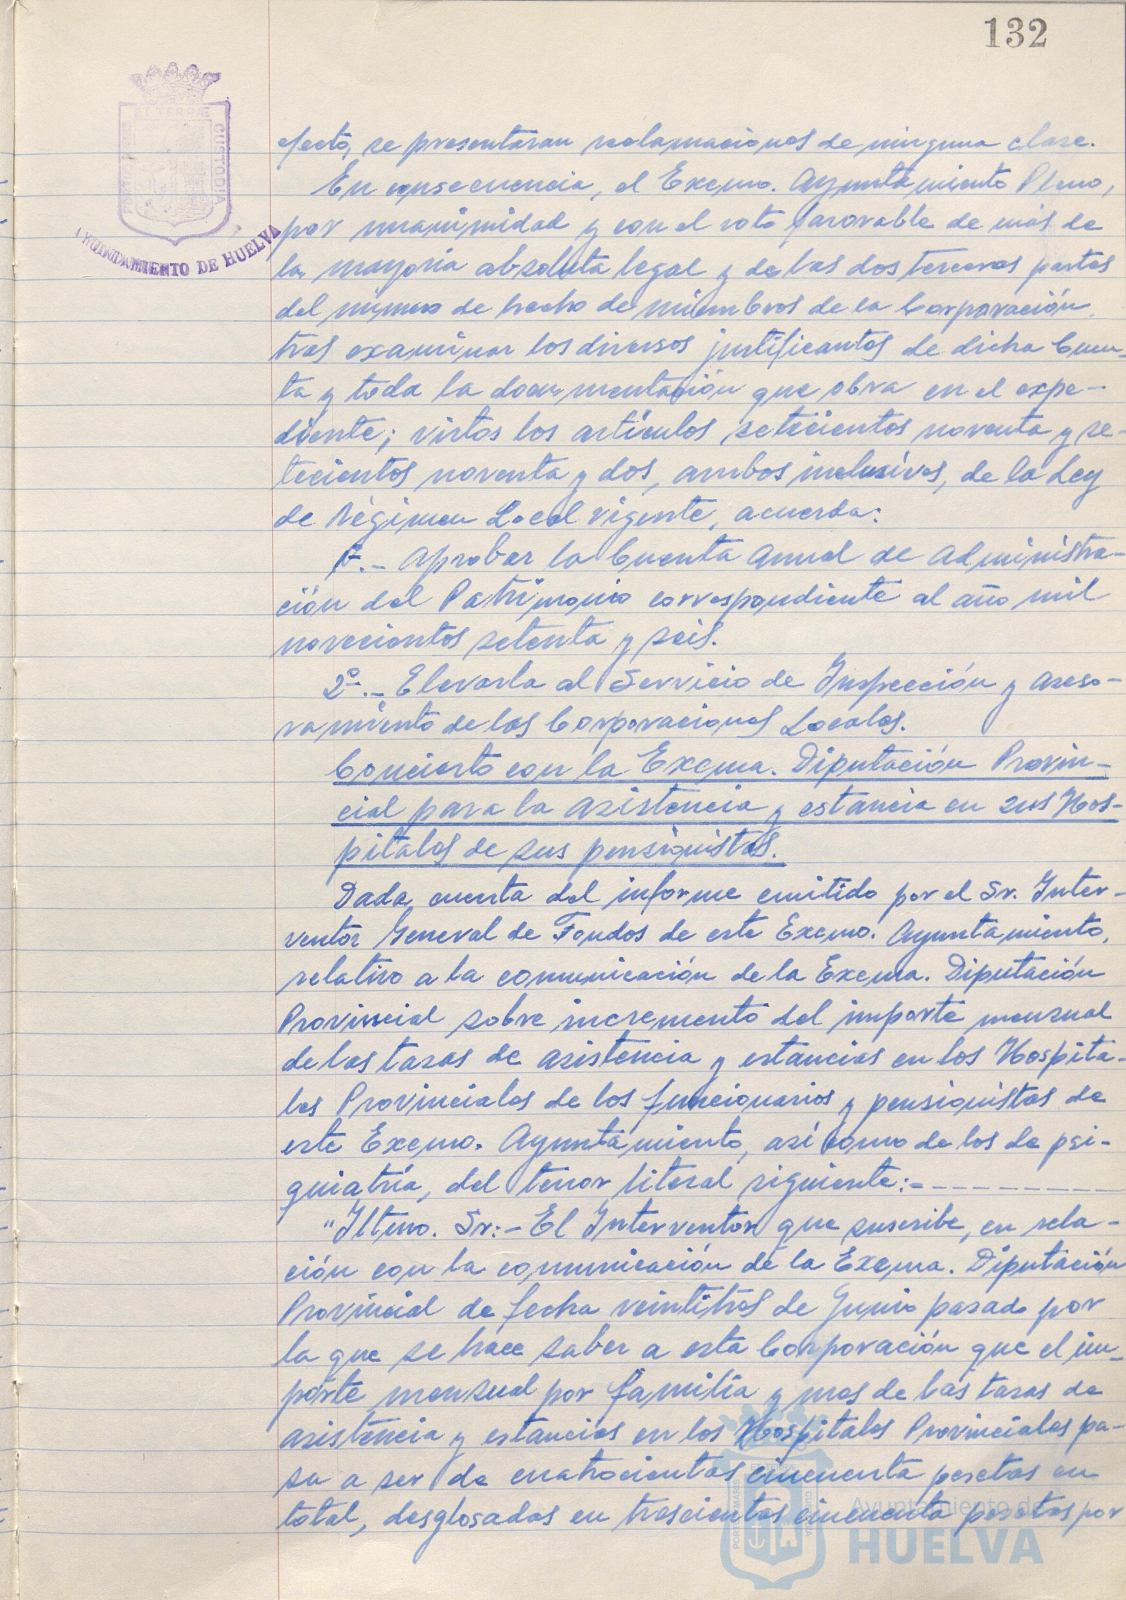 132
PORTUS MARIS ET TERRAE CUSTODIA
AYUNTAMIENTO DE HUELVA
efecto, se presentaran reclamaciones de ninguna clase.
En consecuencia, el Excmo. Ayuntamiento Pleno,
por unanimidad y con el voto favorable de más de
la mayoría absoluta legal y de las dos terceras partes
del número de hecho de miembros de la Corporación,
tras examinar los diversos justificantes de dicha Cuen-
ta y toda la documentación que obra en el expe-
diente; vistos los artículos setecientos noventa y se-
tecientos noventa y dos, ambos inclusives, de la Ley
de Régimen Local vigente, acuerda:
1º.- Aprobar la Cuenta Anual de Administra-
ción del Patrimonio correspondiente al año mil
novecientos setenta y seis.
2º.- Elevarla al Servicio de Inspección y Aseso-
ramiento de las Corporaciones Locales.
Concierto con la Excma. Diputación Provin-
cial para la asistencia y estancia en sus Hos-
pitales de sus pensionistas.
Dada cuenta del informe emitido por el Sr. Inter-
ventor General de Fondos de este Excmo. Ayuntamiento,
relativo a la comunicación de la Excma. Diputación
Provincial sobre incremento del importe mensual
de las tasas de asistencia y estancias en los Hospita-
les Provinciales de los funcionarios y pensionistas de
este Excmo. Ayuntamiento, así como de los de psi-
quiatría, del tenor literal siguiente:-
"Iltmo. Sr:- El Interventor que suscribe, en rela-
ción con la comunicación de la Excma. Diputación
Provincial de fecha veintitres de Junio pasado por
la que se hace saber a esta Corporación que el im-
porte mensual por familia y mes de las tasas de
asistencia y estancias en los Hospitales Provinciales pa-
sa a ser de cuatrocientas cincuenta pesetas en
total, desglosadas en trescientas cincuenta pesetas por
Ayuntamiento de
HUELVA